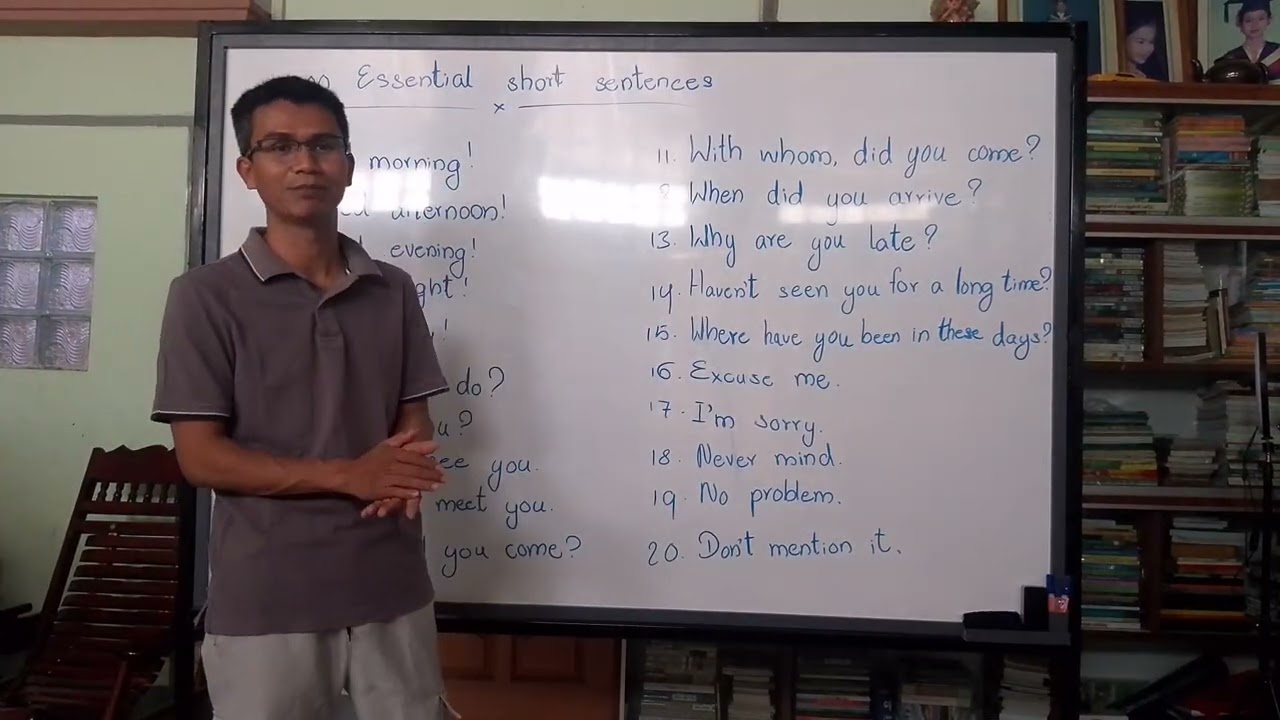 Essential short sentences
morning!
afternoon!
evening!
ght!
!
do?
u?
see you.
meet you.
you come?
11. With whom, did you come?
When did you arrive?
13. Why are you late?
14. Haven't seen you for a long time?
15. Where have you been in these days?
16. Excuse me.
17. I'm sorry.
18. Never mind.
19. No problem.
20. Don't mention it.